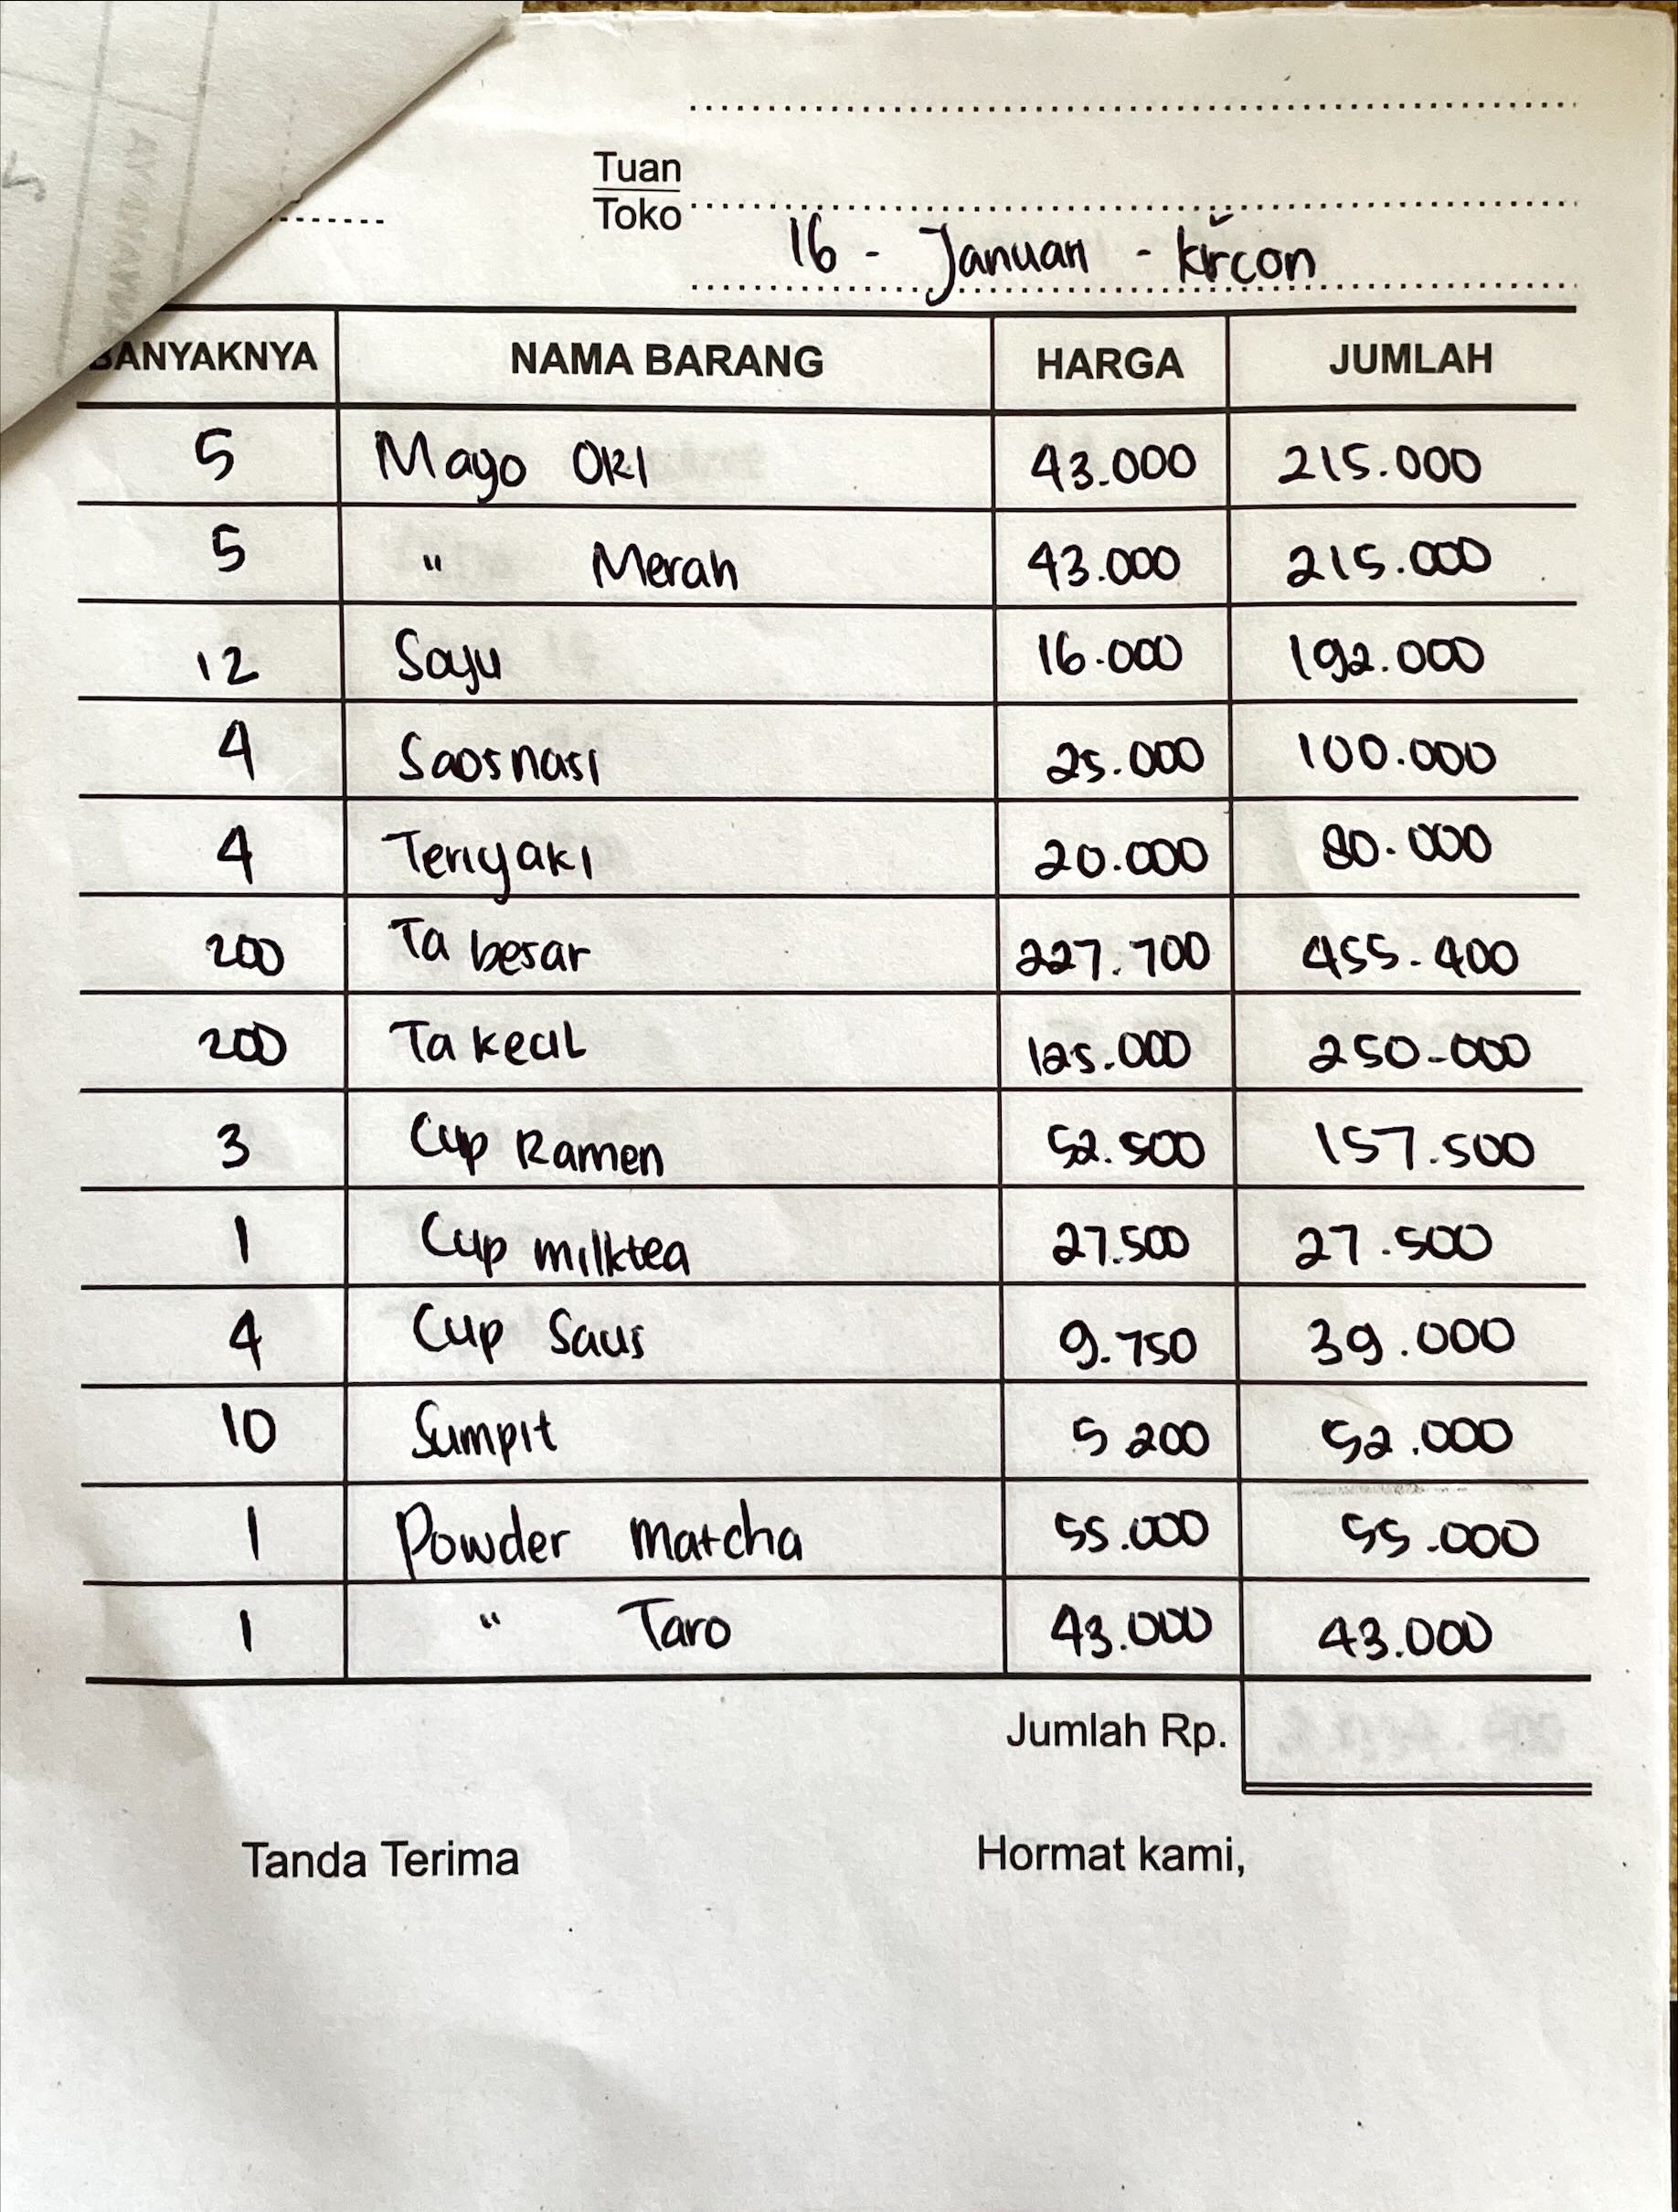 Tuan
Toko
16 - Januari - kircon
BANYAKNYA NAMA BARANG HARGA JUMLAH
5 Mayo Oki 43.000 215.000
5 " Merah 43.000 215.000
12 Soyu 16.000 192.000
4 Saosnasi 25.000 100.000
4 Teriyaki 20.000 80.000
200 Ta besar 227.700 455.400
200 Ta kecil 125.000 250.000
3 Cup Ramen 52.500 157.500
1 Cup milktea 27.500 27.500
4 Cup Saus 9.750 39.000
10 Sumpit 5 200 52.000
1 Powder matcha 55.000 55.000
1 " Taro 43.000 43.000
Jumlah Rp.
Tanda Terima Hormat kami,